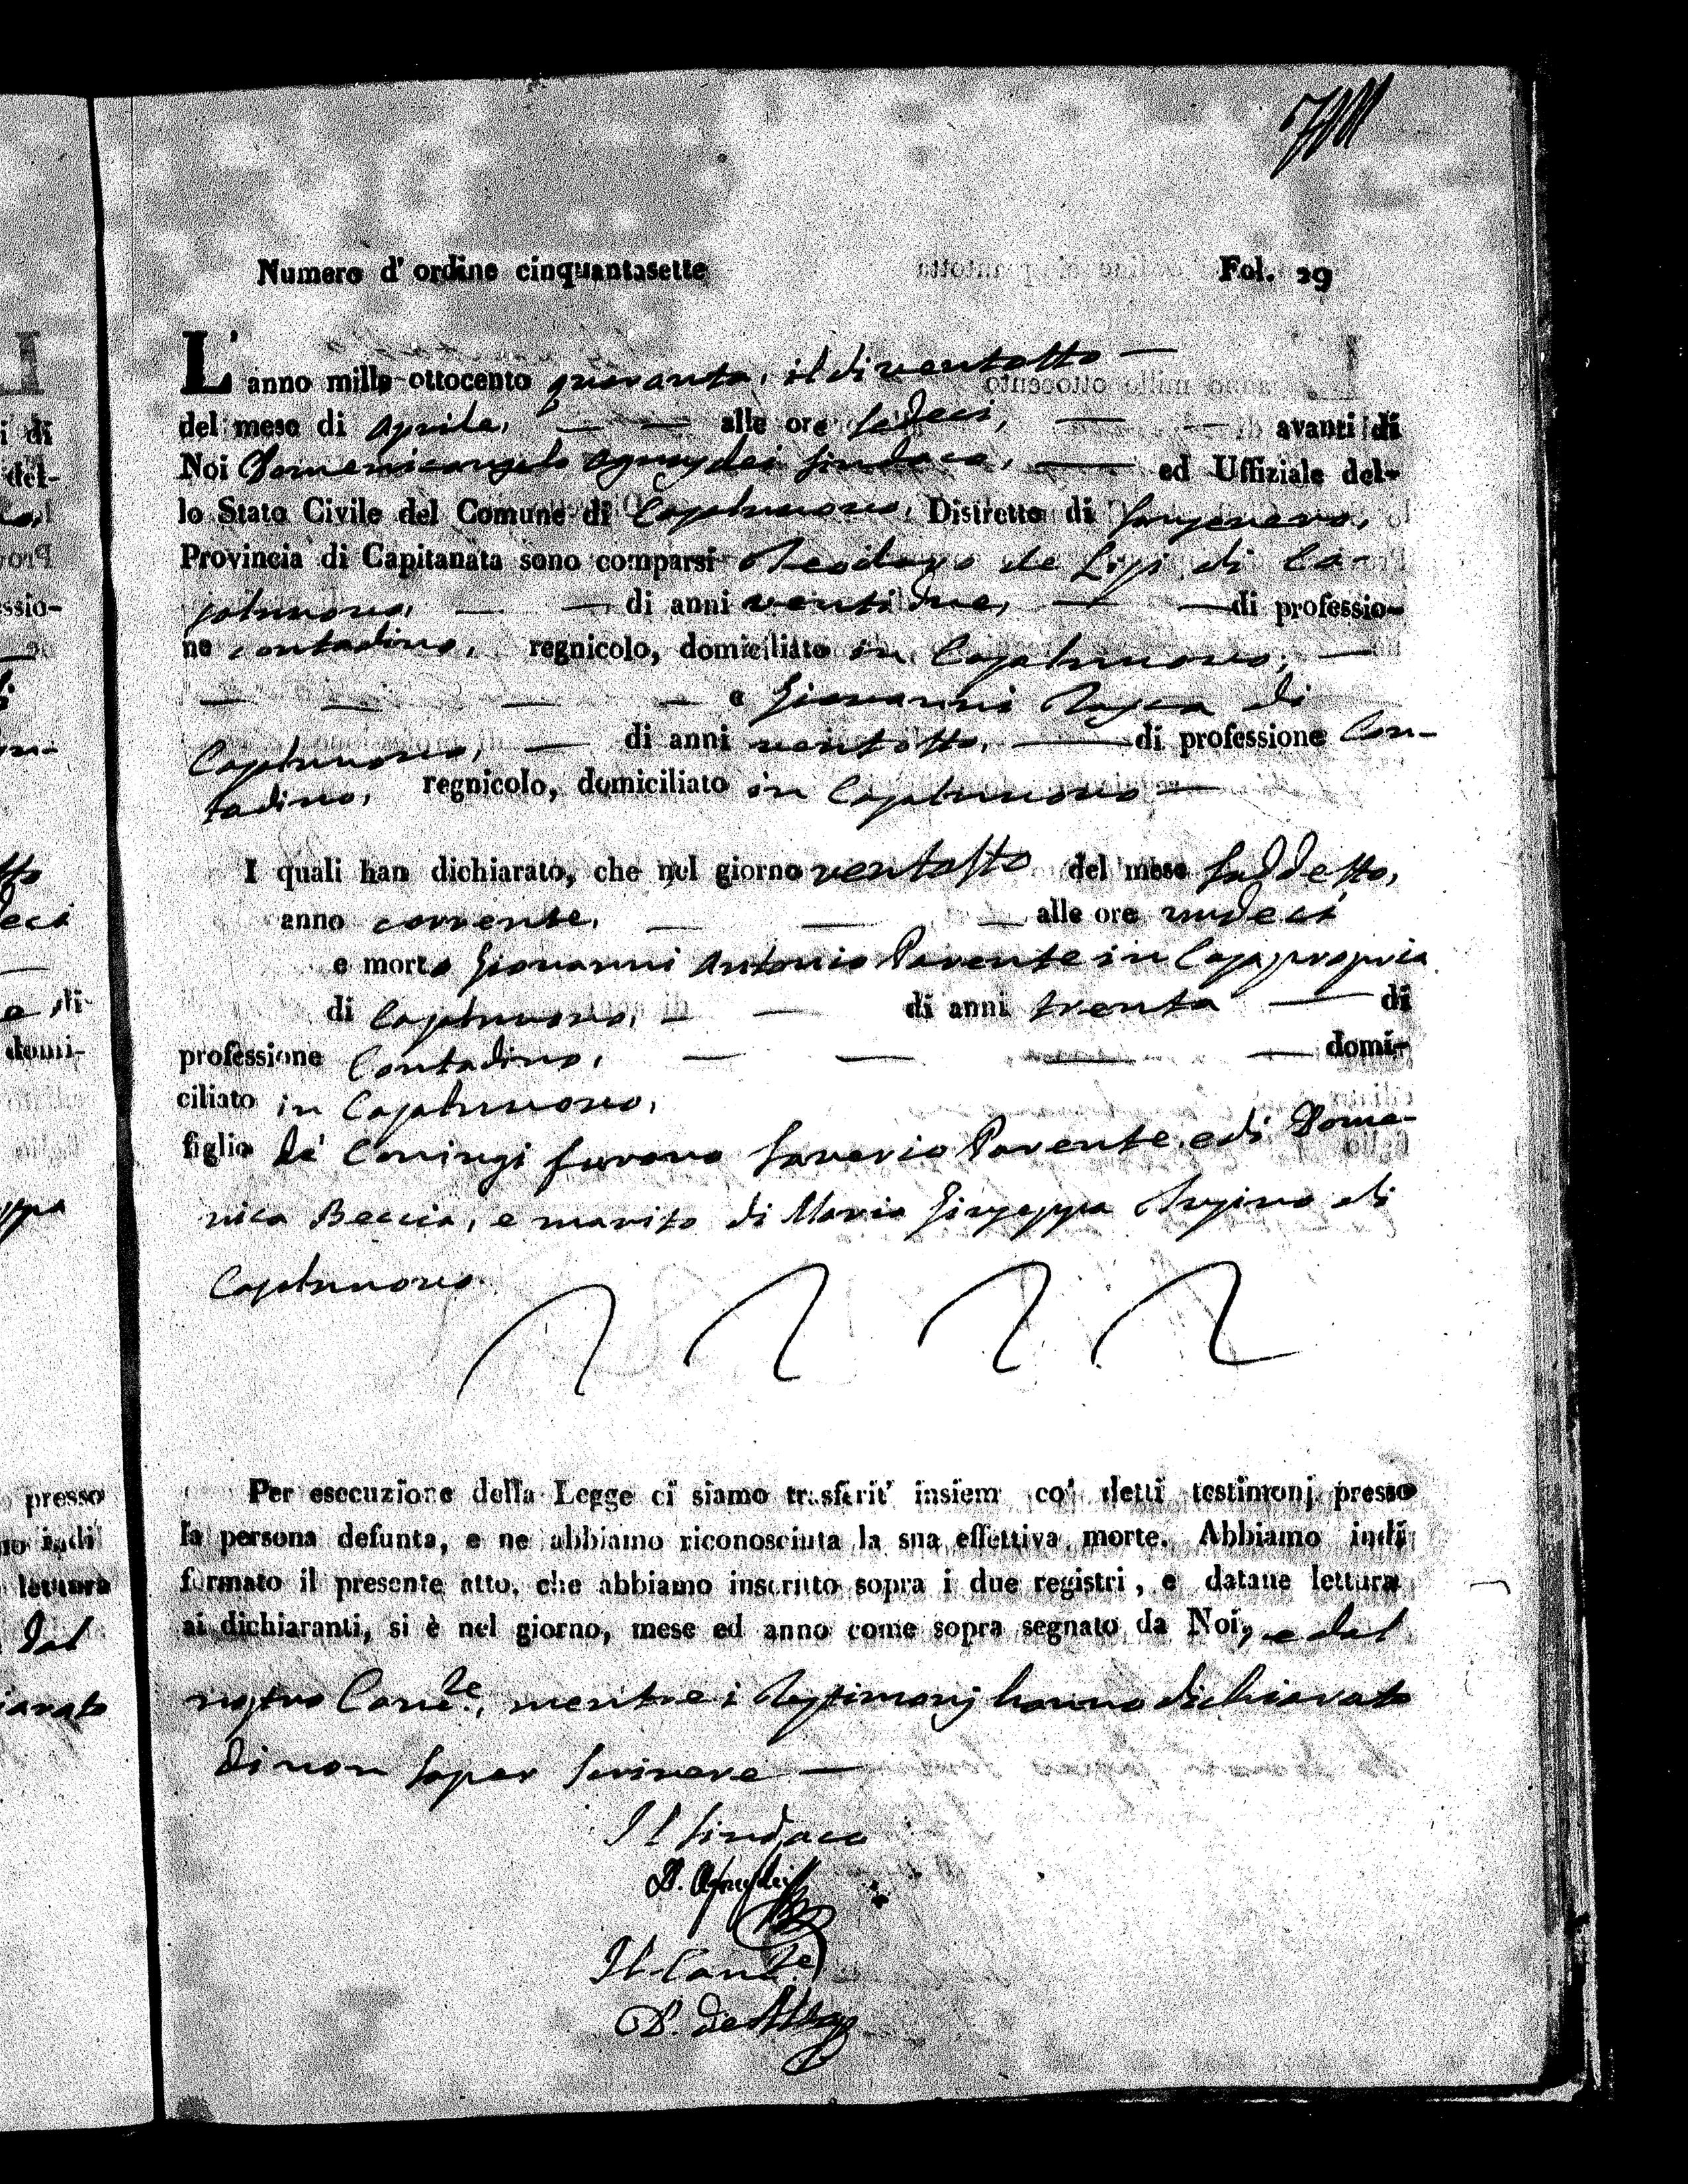 Numero d' ordine cinquantasette Fol. 29
L' anno mille-ottocento quaranta, il di ventotto —
del mese di Aprile, — — alle ore sedeci, — — avanti di
Noi Domenicangelo Sindaco, — ed Uffiziale del-
lo Stato Civile del Comune di Casalnuovo, Distretto di Sansevero,
Provincia di Capitanata sono comparsi Teodoro de Lisi di Ca-
salnuovo, — — di anni venti due, — — di professio-
ne contadino, regnicolo, domiciliato in Casalnuovo, —
— — — — e Giovanni di
Casalnuovo, — di anni ventotto, — di professione Con-
tadino, regnicolo, domiciliato in Casalnuovo —
I quali han dichiarato, che nel giorno ventotto del mese suddetto,
anno corrente, — — — alle ore undeci
e morto Giovanni Antonio Parente in Casa propria
di Casalnuovo, — — di anni trenta — di
professione Contadino, — — — — domi-
ciliato in Casalnuovo,
figlio de' Coniugi furono Saverio Parente, e di Dome-
nica Beccia, e marito di Maria Giuseppa di
Casalnuovo
Per esecuzione della Legge ci siamo trasferit' insiem co' detti testimonj presso
la persona defunta, e ne abbiamo riconosciuta la sua effettiva morte. Abbiamo indi
formato il presente atto, che abbiamo inscritto sopra i due registri, e datane lettura
ai dichiaranti, si è nel giorno, mese ed anno come sopra segnato da Noi, e dal
nostro Canc.re, mentre i Testimonj hanno dichiarato
di non saper scrivere —
Il Sindaco
Il Canc.re